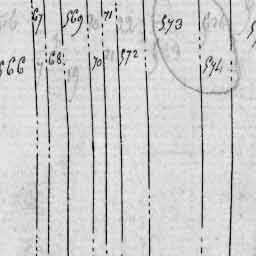 67 569 71 573
566 68 70 572 574